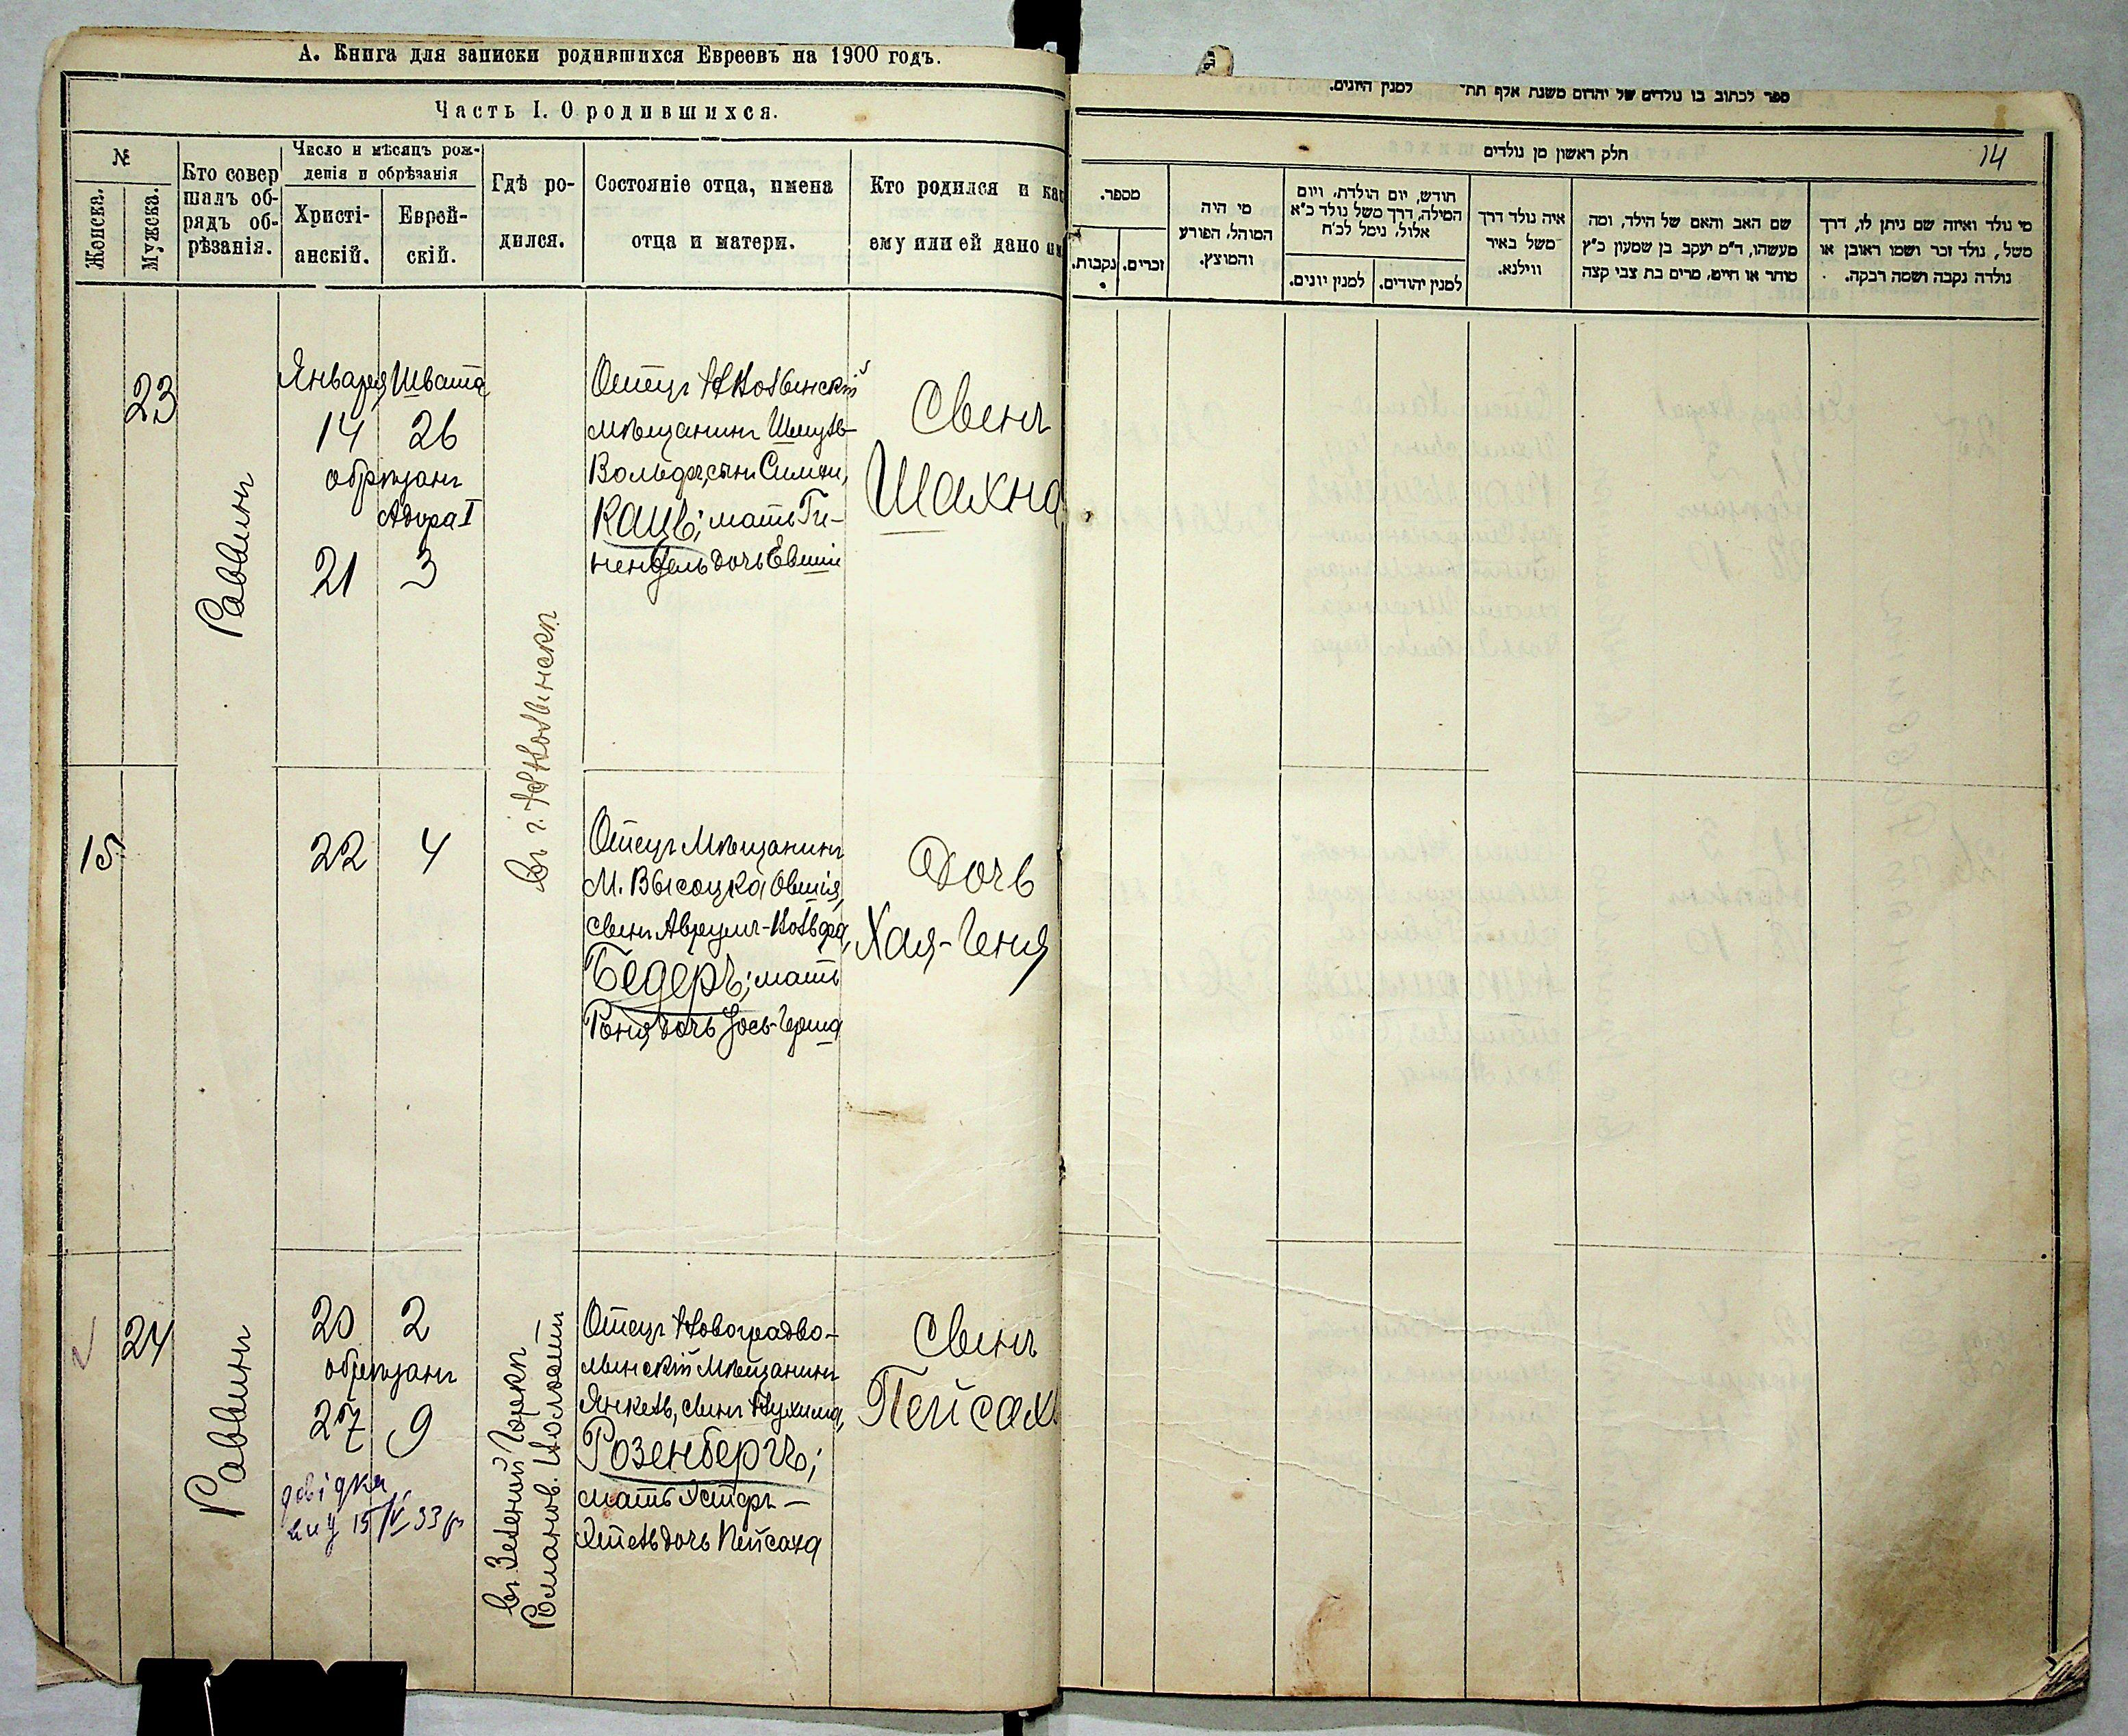 А. Книга для записки родившихся Евреевъ на 1900 годъ.
Часть I. О родившихся.
№
Женска.
Мужска.
Кто совер
шалъ об-
рядъ об-
рѣзанія.
Число и мѣсяцъ рож-
денія и обрѣзанія
Христі-
анскій.
Еврей-
скій.
Гдѣ ро-
дился.
Состояніе отца, имена
отца и матери.
Кто родился и как
ему или ей дано им
23
Раввинъ
Января Швата
14 26
обрѣзанъ
Адара I
21 3
Отецъ
мѣщанинъ Шмуль-
Вольфъ, сынъ Симхи,
Кацъ; мать Ги-
нендель дочь Евшіи
Сынъ
Шахна
15
22 4
Отецъ Мѣщанинъ
М. Высоцка Овшія,
сынъ Аврумъ-Вольфа,
Бедеръ; мать
Роня, дочь Іось-Герша
Дочь
Хая-Геня
24
Раввинъ
20 2
обрѣзанъ
27 9
довідка
вид 15/IV 33 р
въ Зелений Горки
Романов. Волости
Отецъ Новоградво-
лынскій Мѣщанинъ
Янкель, сынъ Нухима,
Розенбергъ;
мать Эстеръ-
Этель дочь Пейсаха
Сынъ
Пейсахъ
ספר לכתוב בו נולדים של יהדום משנת אלף תת״ למנין היונים.
חלק ראשון מן נולדים
14
מספר.
נקבות.
זכרים.
מי היה
המוהל, הפורע
והמוצץ.
חודש, יום הולדת, ויום
המילה, דרך משל נולד כ״א
אלול, נימל לכ״ח
למנין יונים.
למנין יהודים.
איה נולד דרך
משל באיר
ווילנא.
שם האב והאם של הילד, ומה
מעשהו, ד״מ יעקב בן שמעון כ״ץ
סוחר או חייט, מרים בת צבי קצה
מי נולד ואיזה שם ניתן לו, דרך
משל, נולד זכר ושמו ראובן או
נולדה נקבה ושמה רבקה.